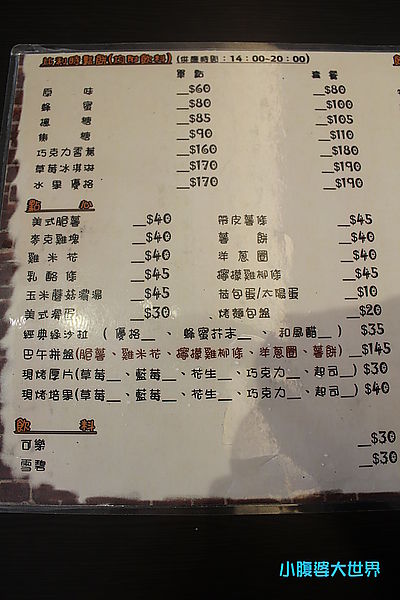 比利時鬆餅(均附飲料) (供應時間：14：00~20：00)
單點 套餐
原味 __$60 __$80
蜂蜜 __$80 __$100
楓糖 __$85 __$105
焦糖 __$90 __$110
巧克力香蕉 __$160 __$180
草莓冰淇淋 __$170 __$190
水果優格 __$170 __$190
點心
美式脆薯 __$40 帶皮薯條 __$45
麥克雞塊 __$40 薯餅 __$40
雞米花 __$40 洋蔥圈 __$40
乳酪條 __$45 檸檬雞柳條 __$45
玉米蘑菇濃湯 __$45 荷包蛋/太陽蛋 __$10
美式滑蛋 __$30 烤麵包盤 __$20
經典綠沙拉 ( 優格__、蜂蜜芥末__、和風醋__) $35
巴午拼盤(脆薯、雞米花、檸檬雞柳條、洋蔥圈、薯餅)__$145
現烤厚片(草莓__、藍莓__、花生__、巧克力__、起司__) $30
現烤培果(草莓__、藍莓__、花生__、巧克力__、起司__) $40
飲料
可樂 __$30
雪碧 __$30
小腹婆大世界